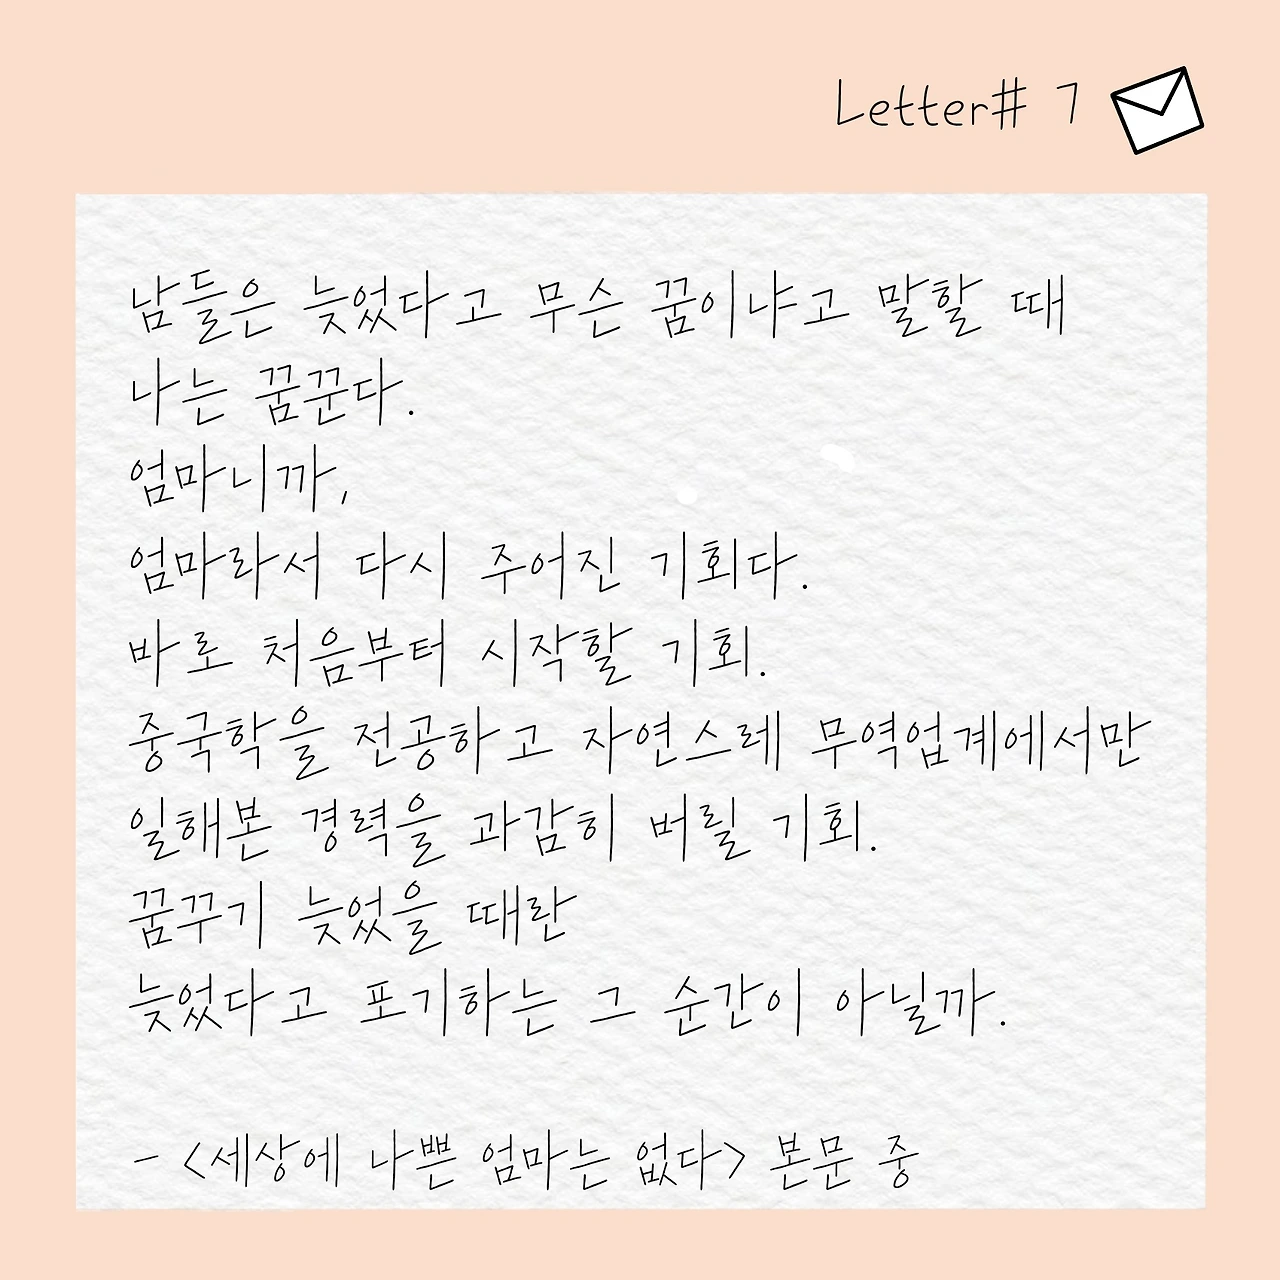 Letter# 7
남들은 늦었다고 무슨 꿈이냐고 말할 때
나는 꿈꾼다.
엄마니까,
엄마라서 다시 주어진 기회다.
바로 처음부터 시작할 기회.
중국학을 전공하고 자연스레 무역업계에서만
일해본 경력을 과감히 버릴 기회.
꿈꾸기 늦었을 때란
늦었다고 포기하는 그 순간이 아닐까.
- <세상에 나쁜 엄마는 없다> 본문 중